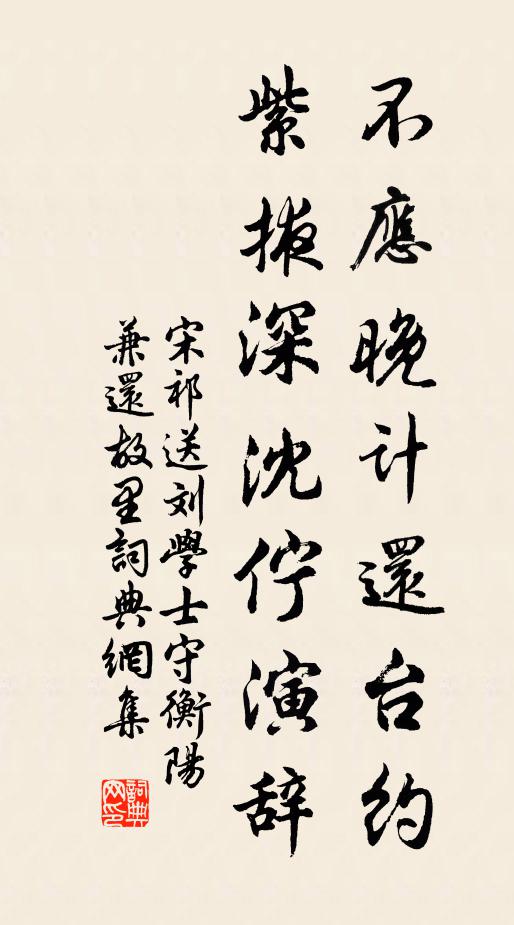 不應晚計還台約
紫掖深沈佇演辞
宋祁送刘學士守衡陽
兼還故里詞典網集
詞典
网印